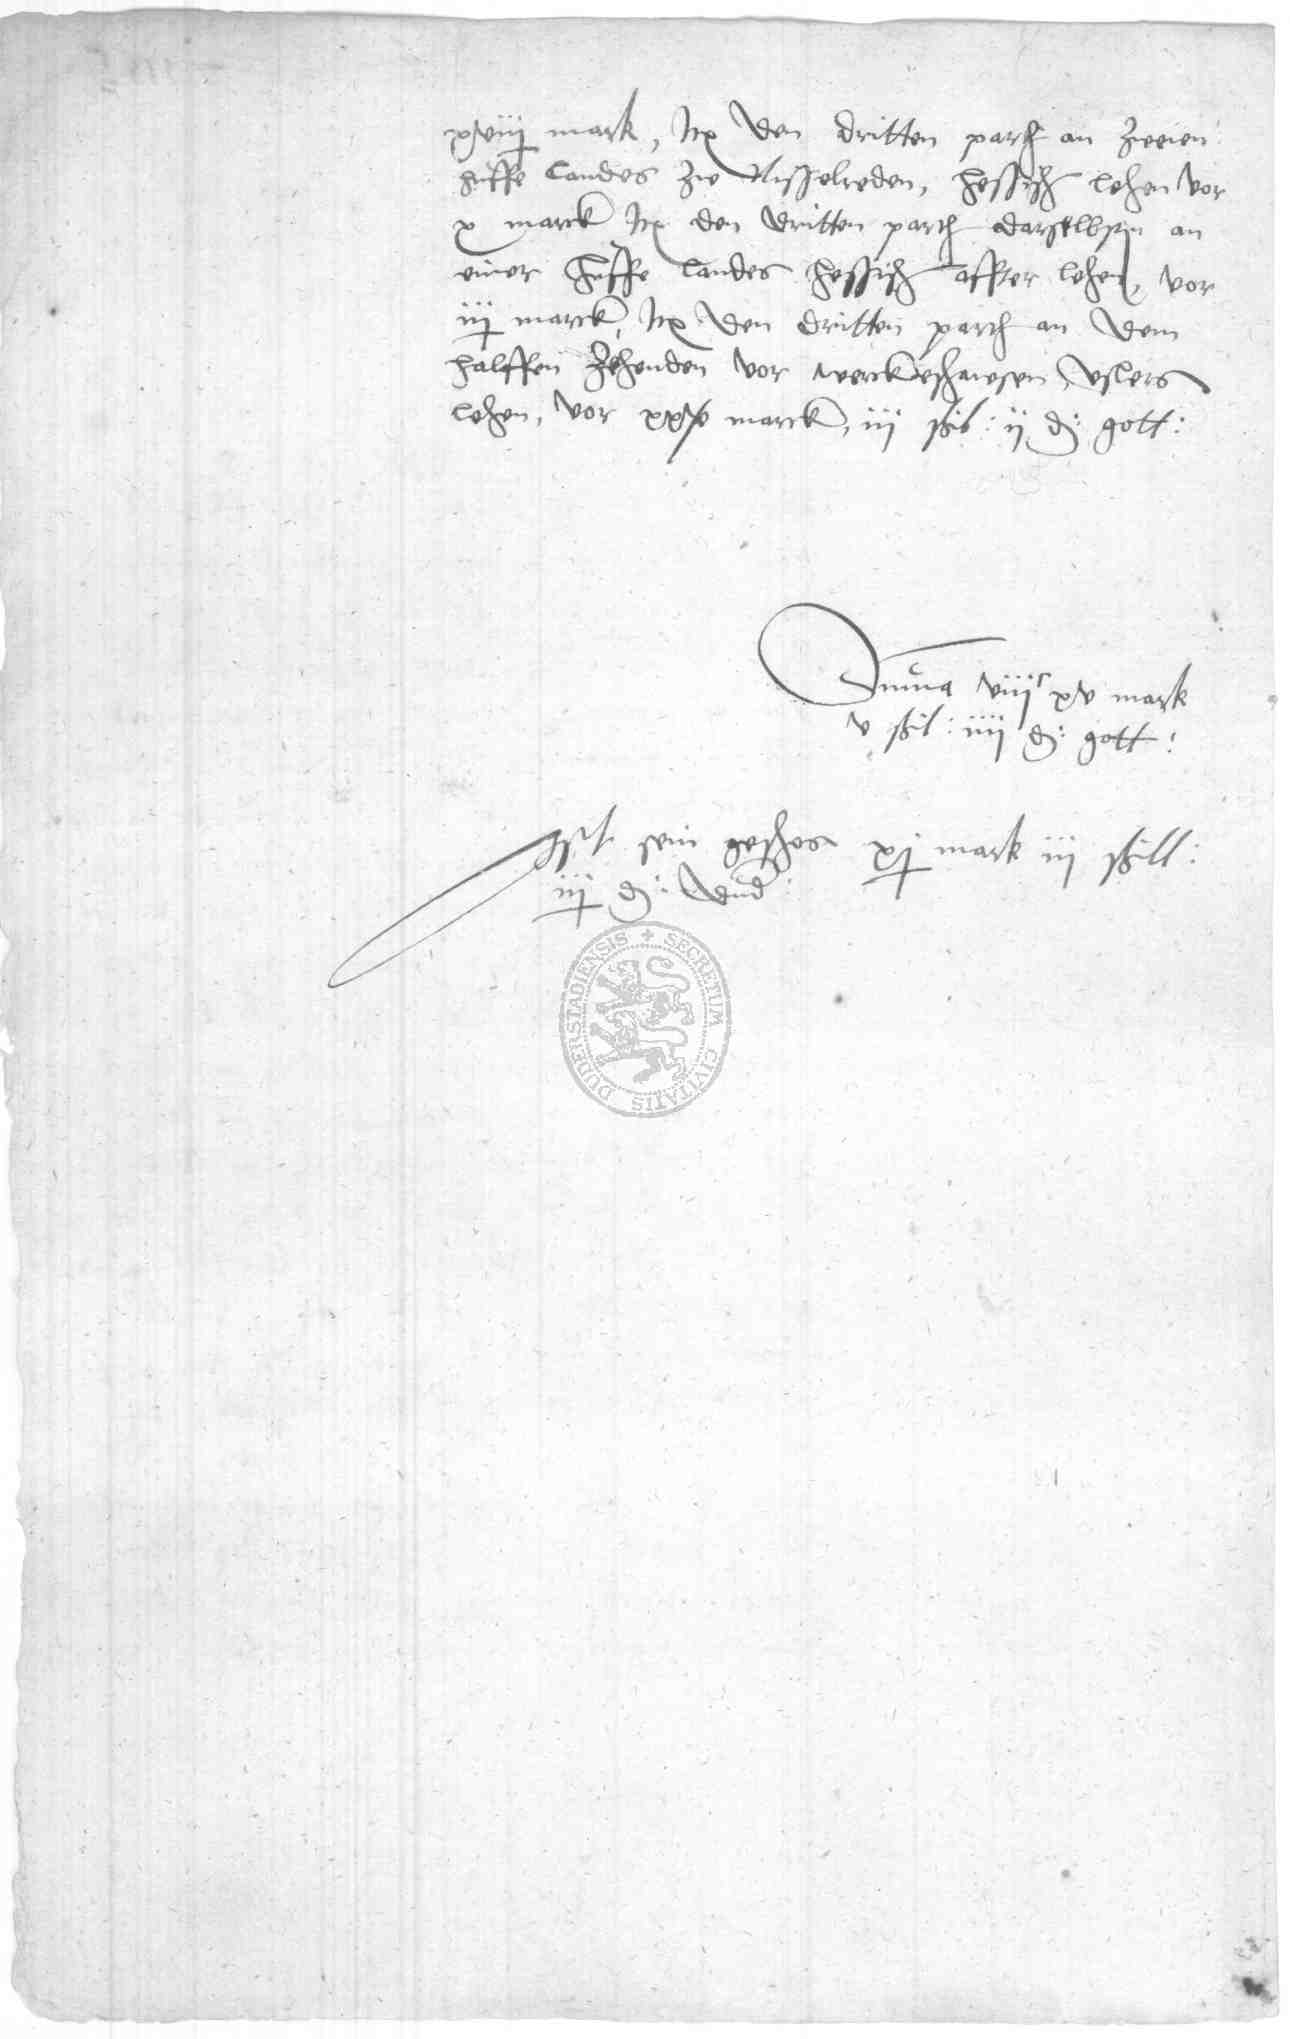 xviij mark, Itz den dritten parth an zweien
huffe landes zw Nisselreden, hessisch lehen vor
x marck Itz den dritten parth darselbsin an
einer huffe landes hessisch affter lehen, vor
iij marck, Itz den dritten parth an dem
halffen Zehenden vor werckeshawsen, uslers
lehen, vor xxv marck, iij ßil: ij d: gott:
Summa viijc xv mark
v ßil: iiij d: gott:
Ist sein geschos xj mark iij ßill:
iij d: Dud:
SECRETUM CIVITATIS DUDERSTADIENSIS